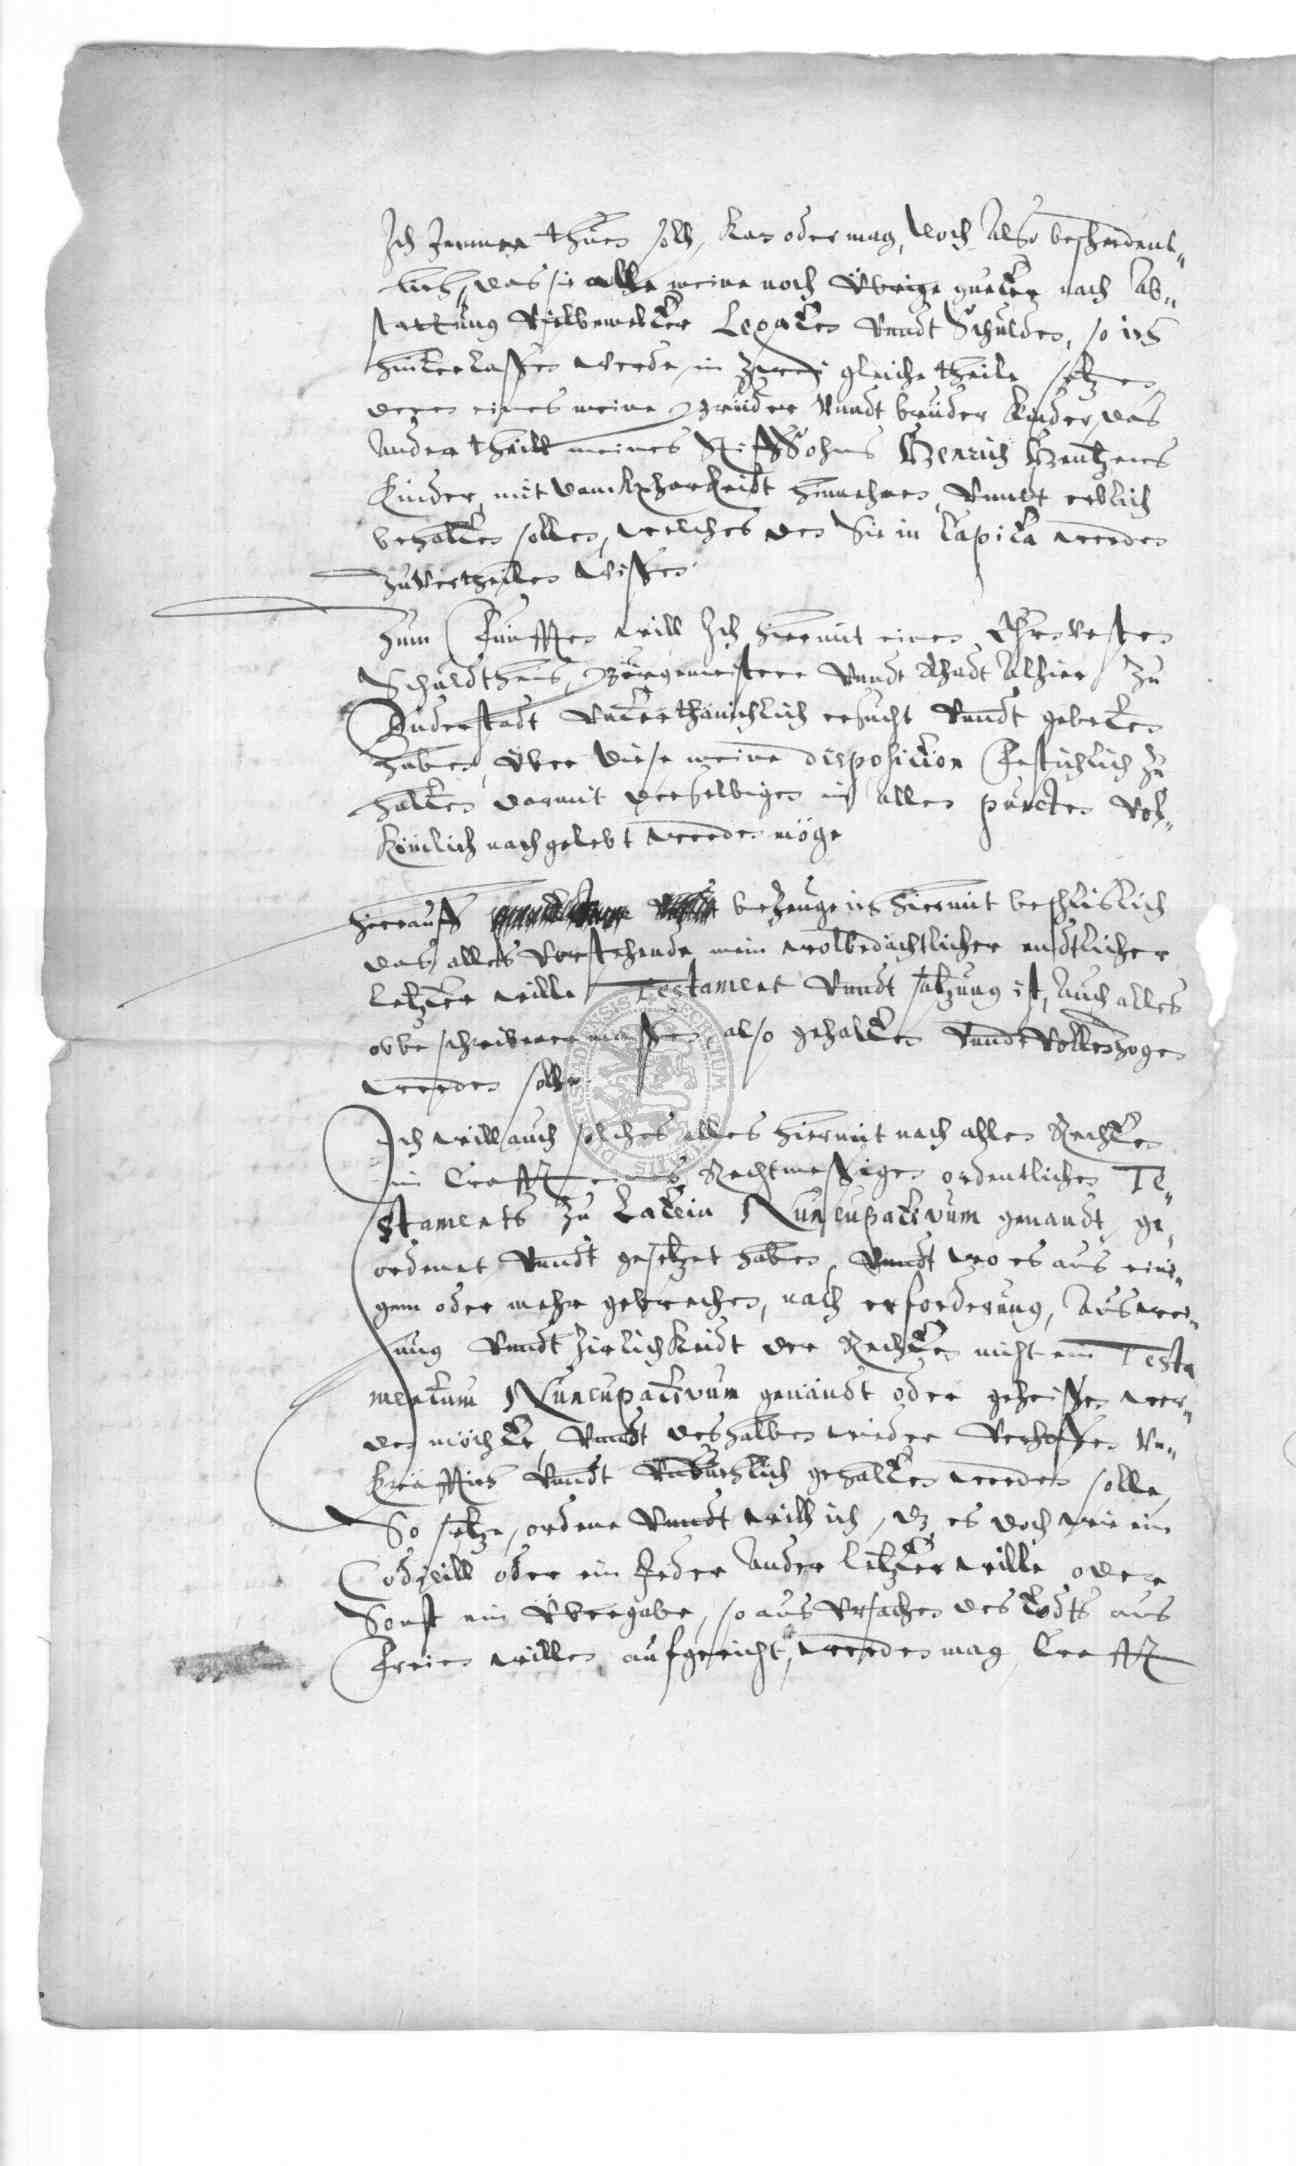 Ich Immer thuen soll, kan oder mag, doch also bescheident„
lich, das sie alle meine noch übrige gueter nach Ab„
stattung Legaten unndt Schulden, so ich
hinterlassen werde, in zwei gleiche theile setzen
deren eines meine Brüder unndt brüder kinder, das
Ander theill meines StiffSohns Henrich Hentzens
Kinder, mit danckbarkeidt hinnehmen, unndt erblich
behalten sollen, welches den Sie in Capita werden
zuvertheilen wissen
Zum Fünfften will Ich hiermit einen Ehrnvesten
Schuldtheis, Bürgemeistere unndt Rhadt Alhier zu
Duderstadt unterthänichlich ersucht unndt gebeten
haben, über diese meine disposition Festichlich zu
halten darmit derselbigen in allen puncten vol„
kömlich nachgelebt werden möge
Hierauff bezeuge ich hiermit beschlislich
das alles vorstehende mein wolbedächtlicher endtlicher
letzter wille Testament unndt satzung ist, Auch alles
obbeschriebener massen also gehalten unndt vollenzogen
werden solle
Ich will auch solches alles hiermit nach allen Rechten
im Crafft eines Rechtmessigen ordentlichen Te„
staments zu Latein Nuncupativum genandt, ge„
ordenet unndt gesetzet haben, unndt wo es aus eini„
gem oder mehr gebrechen, nach erforderung, Auswei„
sung unndt Zierlichkeidt der Rechten nicht ein Testa
mentum Nuncupativum genandt oder geheissen wer„
den möchte, unndt deshalben wieder verhoffen un„
kräfftich unndt unbüchlich gehalten werden solle,
So setze, ordene unndt will ich, dz es doch wie ein
Codicill oder ein Jeder Ander letzter wille oder
Sonst ein übergabe, so aus ursachen des todts aus
Freien willen aufgericht, werden mag, Crafft